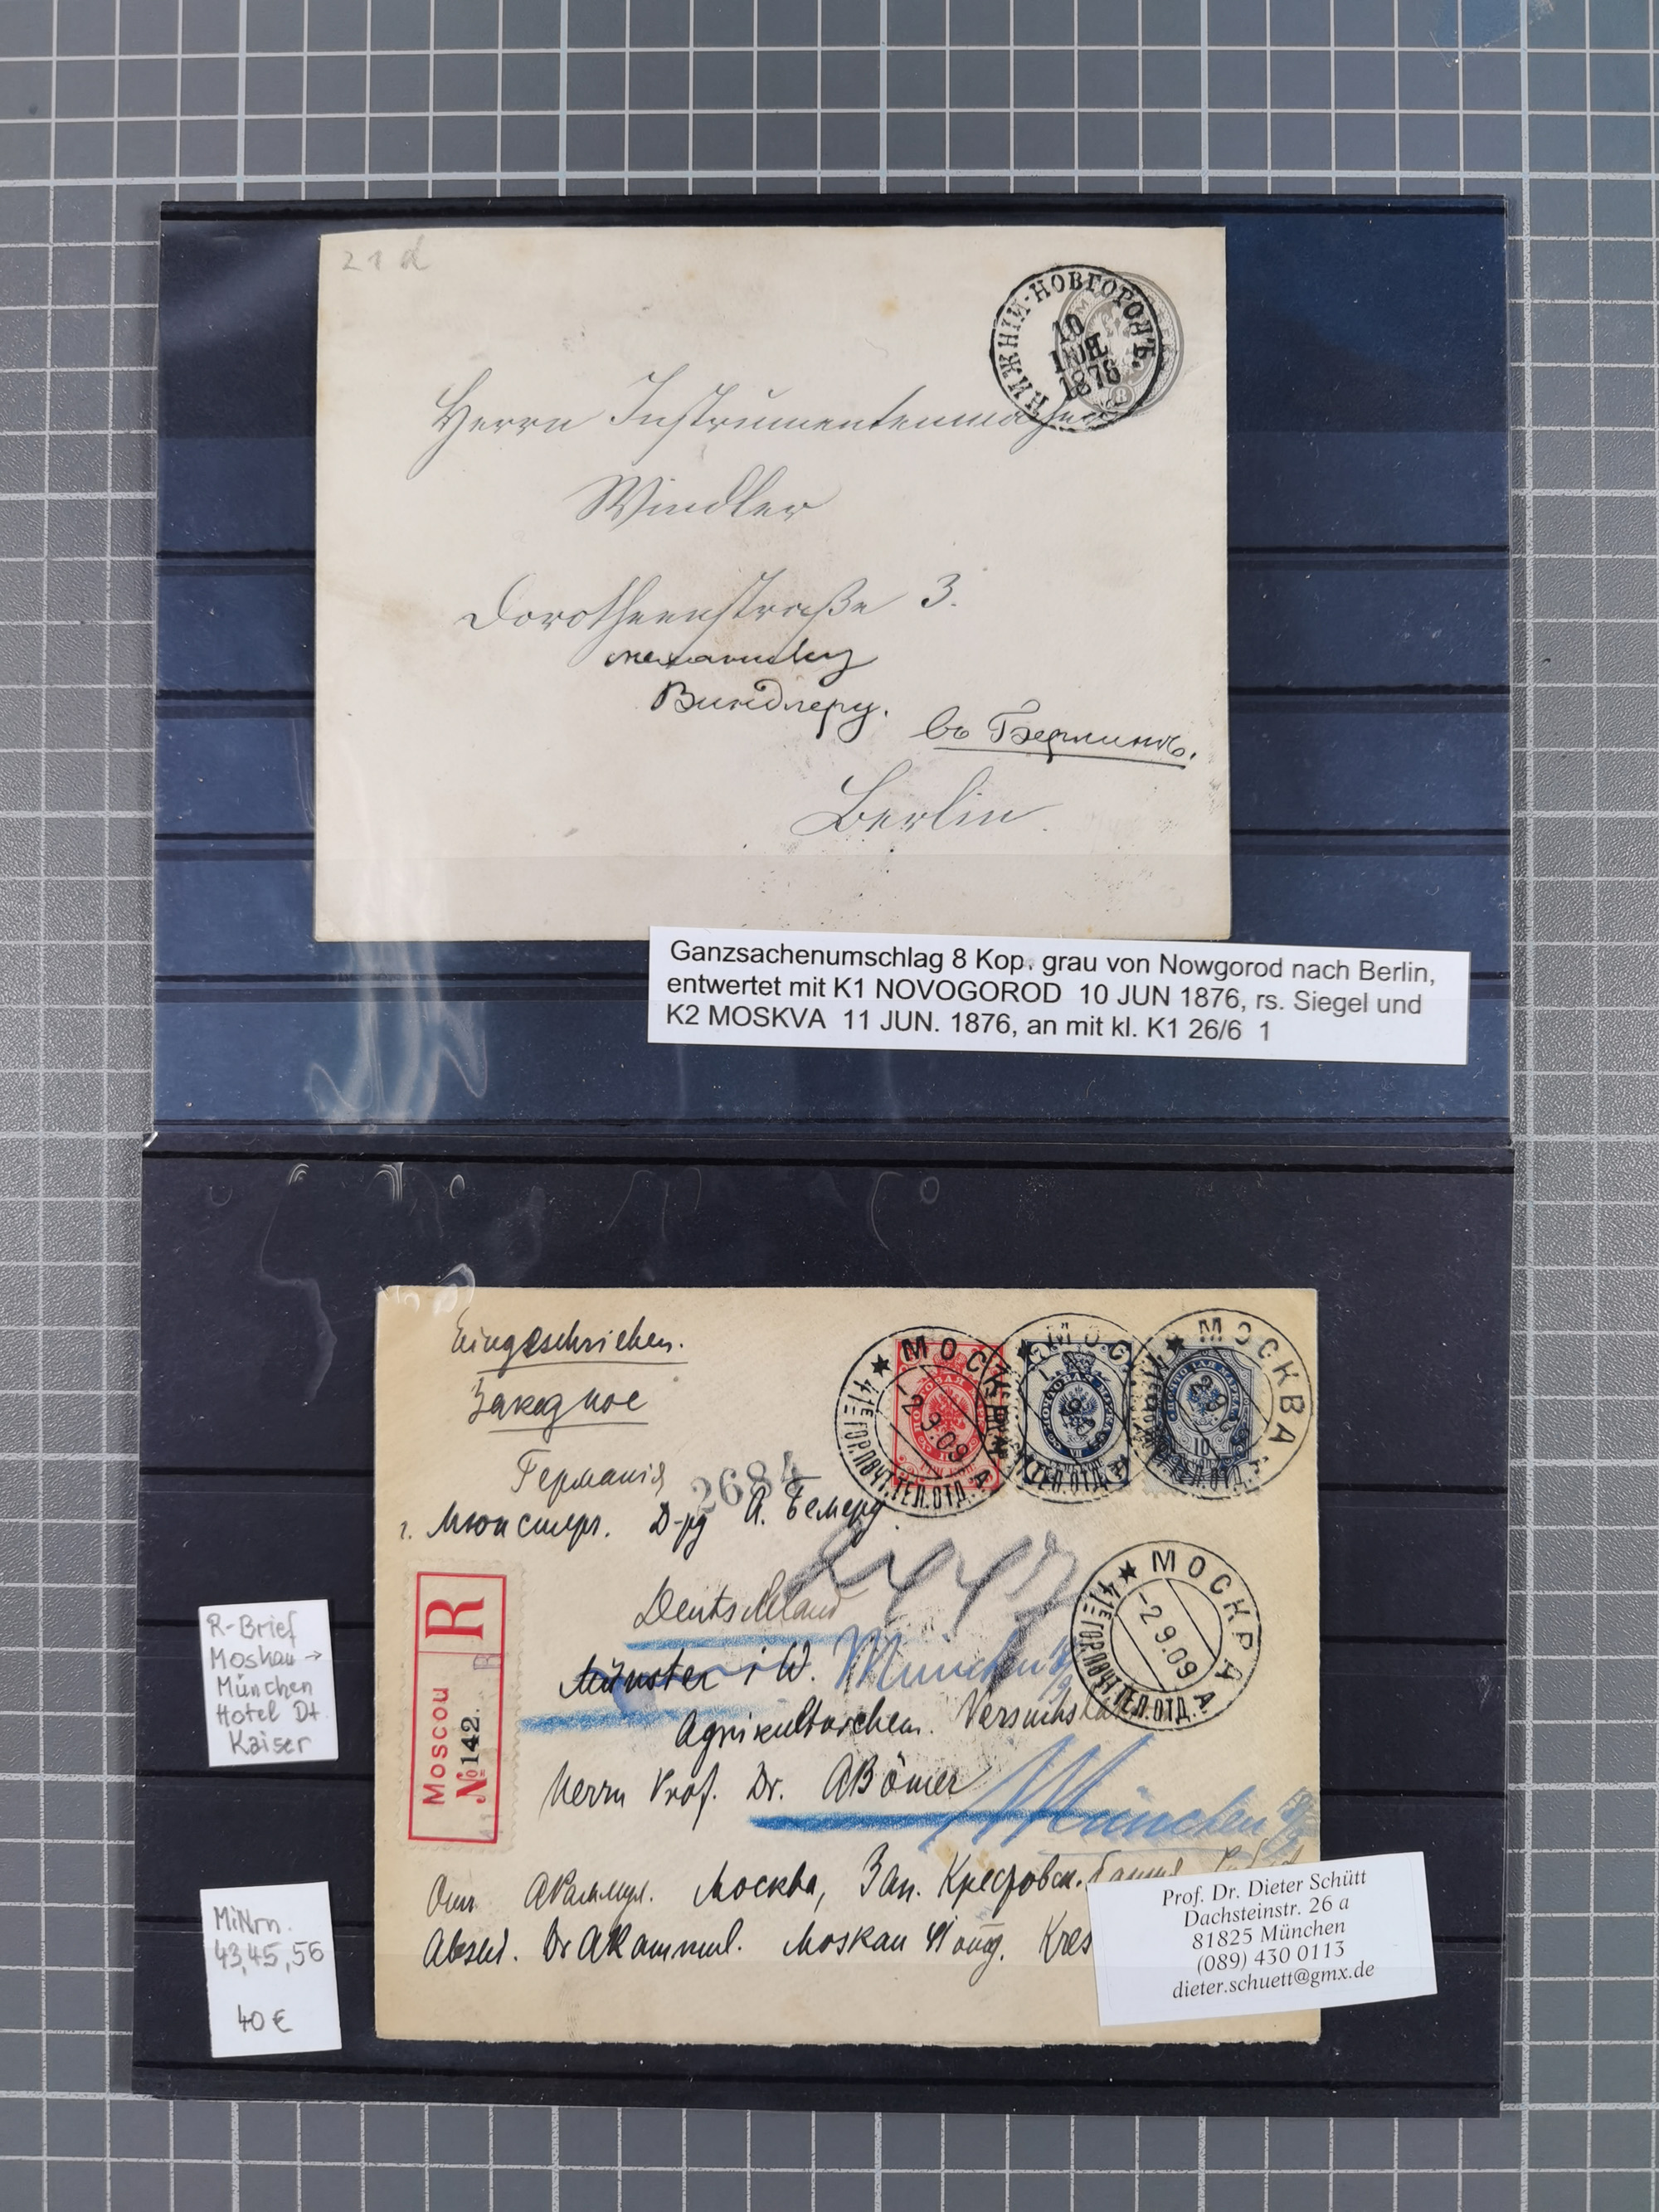 21d
НИЖНІЙ-НОВГОРОДЪ.
10
ІЮН.
1876
Herrn Instrumentenmacher
Windler
Dorotheenstraße 3.
механику
Виндлеру.
въ Берлинъ.
Berlin.
Ganzsachenumschlag 8 Kop. grau von Nowgorod nach Berlin,
entwertet mit K1 NOVOGOROD 10 JUN 1876, rs. Siegel und
K2 MOSKVA 11 JUN. 1876, an mit kl. K1 26/6 1
Eingeschrieben.
Заказное
Германія
2684
г. Мюнстеръ. Д-ру А. Бемеру
МОСКВА
-2.9.09
41Е ГОР.ПОЧТ.ТЕЛ.ОТД.
МОСКВА
МОСКВА
10
Deutschland
Münster i W. München
Agrikulturchem. Versuchs
Herrn Prof. Dr. A Bömer
München
МОСКВА
-2.9.09
41Е ГОР.ПОЧТ.ТЕЛ.ОТД.
R
Moscou
№ 142.
Москва, Зап. Крестовск.
Absend. Dr Moskau Kres
R-Brief
Moskau →
München
Hotel Dt.
Kaiser
MiNrn.
43,45,56
40 €
Prof. Dr. Dieter Schütt
Dachsteinstr. 26 a
81825 München
(089) 430 0113
dieter.schuett@gmx.de